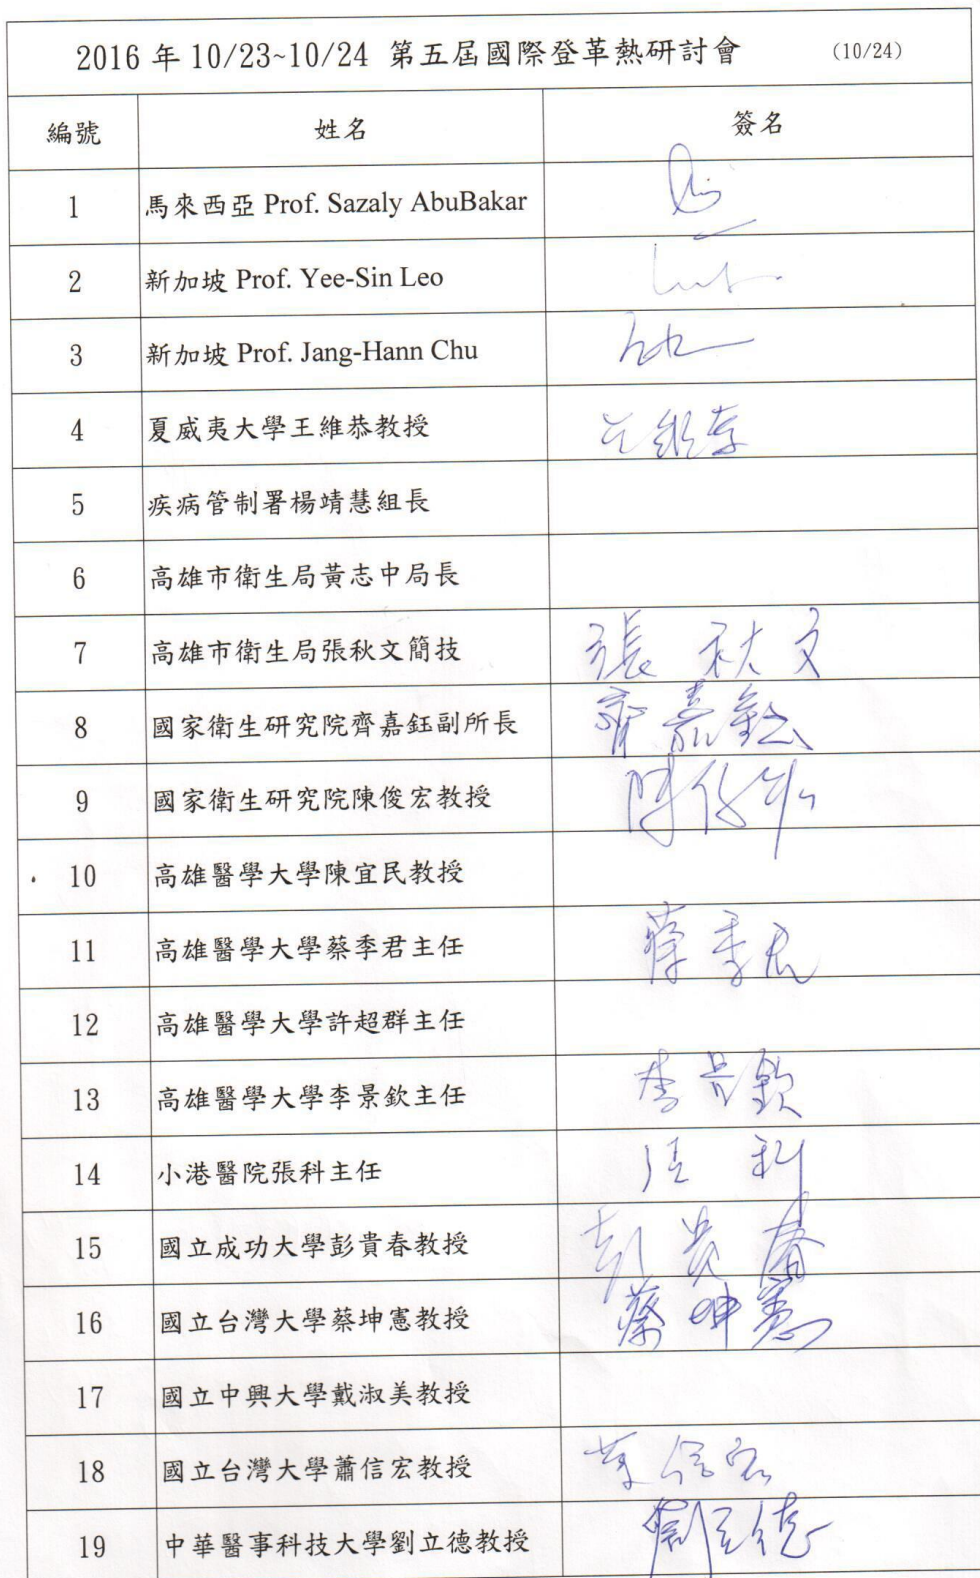 2016 年 10/23~10/24 第五屆國際登革熱研討會 (10/24)
編號 姓名 簽名
1 馬來西亞 Prof. Sazaly AbuBakar
2 新加坡 Prof. Yee-Sin Leo
3 新加坡 Prof. Jang-Hann Chu
4 夏威夷大學王維恭教授
5 疾病管制署楊靖慧組長
6 高雄市衛生局黃志中局長
7 高雄市衛生局張秋文簡技 張秋文
8 國家衛生研究院齊嘉鈺副所長 齊嘉鈺
9 國家衛生研究院陳俊宏教授 陳俊宏
10 高雄醫學大學陳宜民教授
11 高雄醫學大學蔡季君主任 蔡季君
12 高雄醫學大學許超群主任
13 高雄醫學大學李景欽主任 李景欽
14 小港醫院張科主任 張科
15 國立成功大學彭貴春教授 彭貴春
16 國立台灣大學蔡坤憲教授 蔡坤憲
17 國立中興大學戴淑美教授
18 國立台灣大學蕭信宏教授 蕭信宏
19 中華醫事科技大學劉立德教授 劉立德